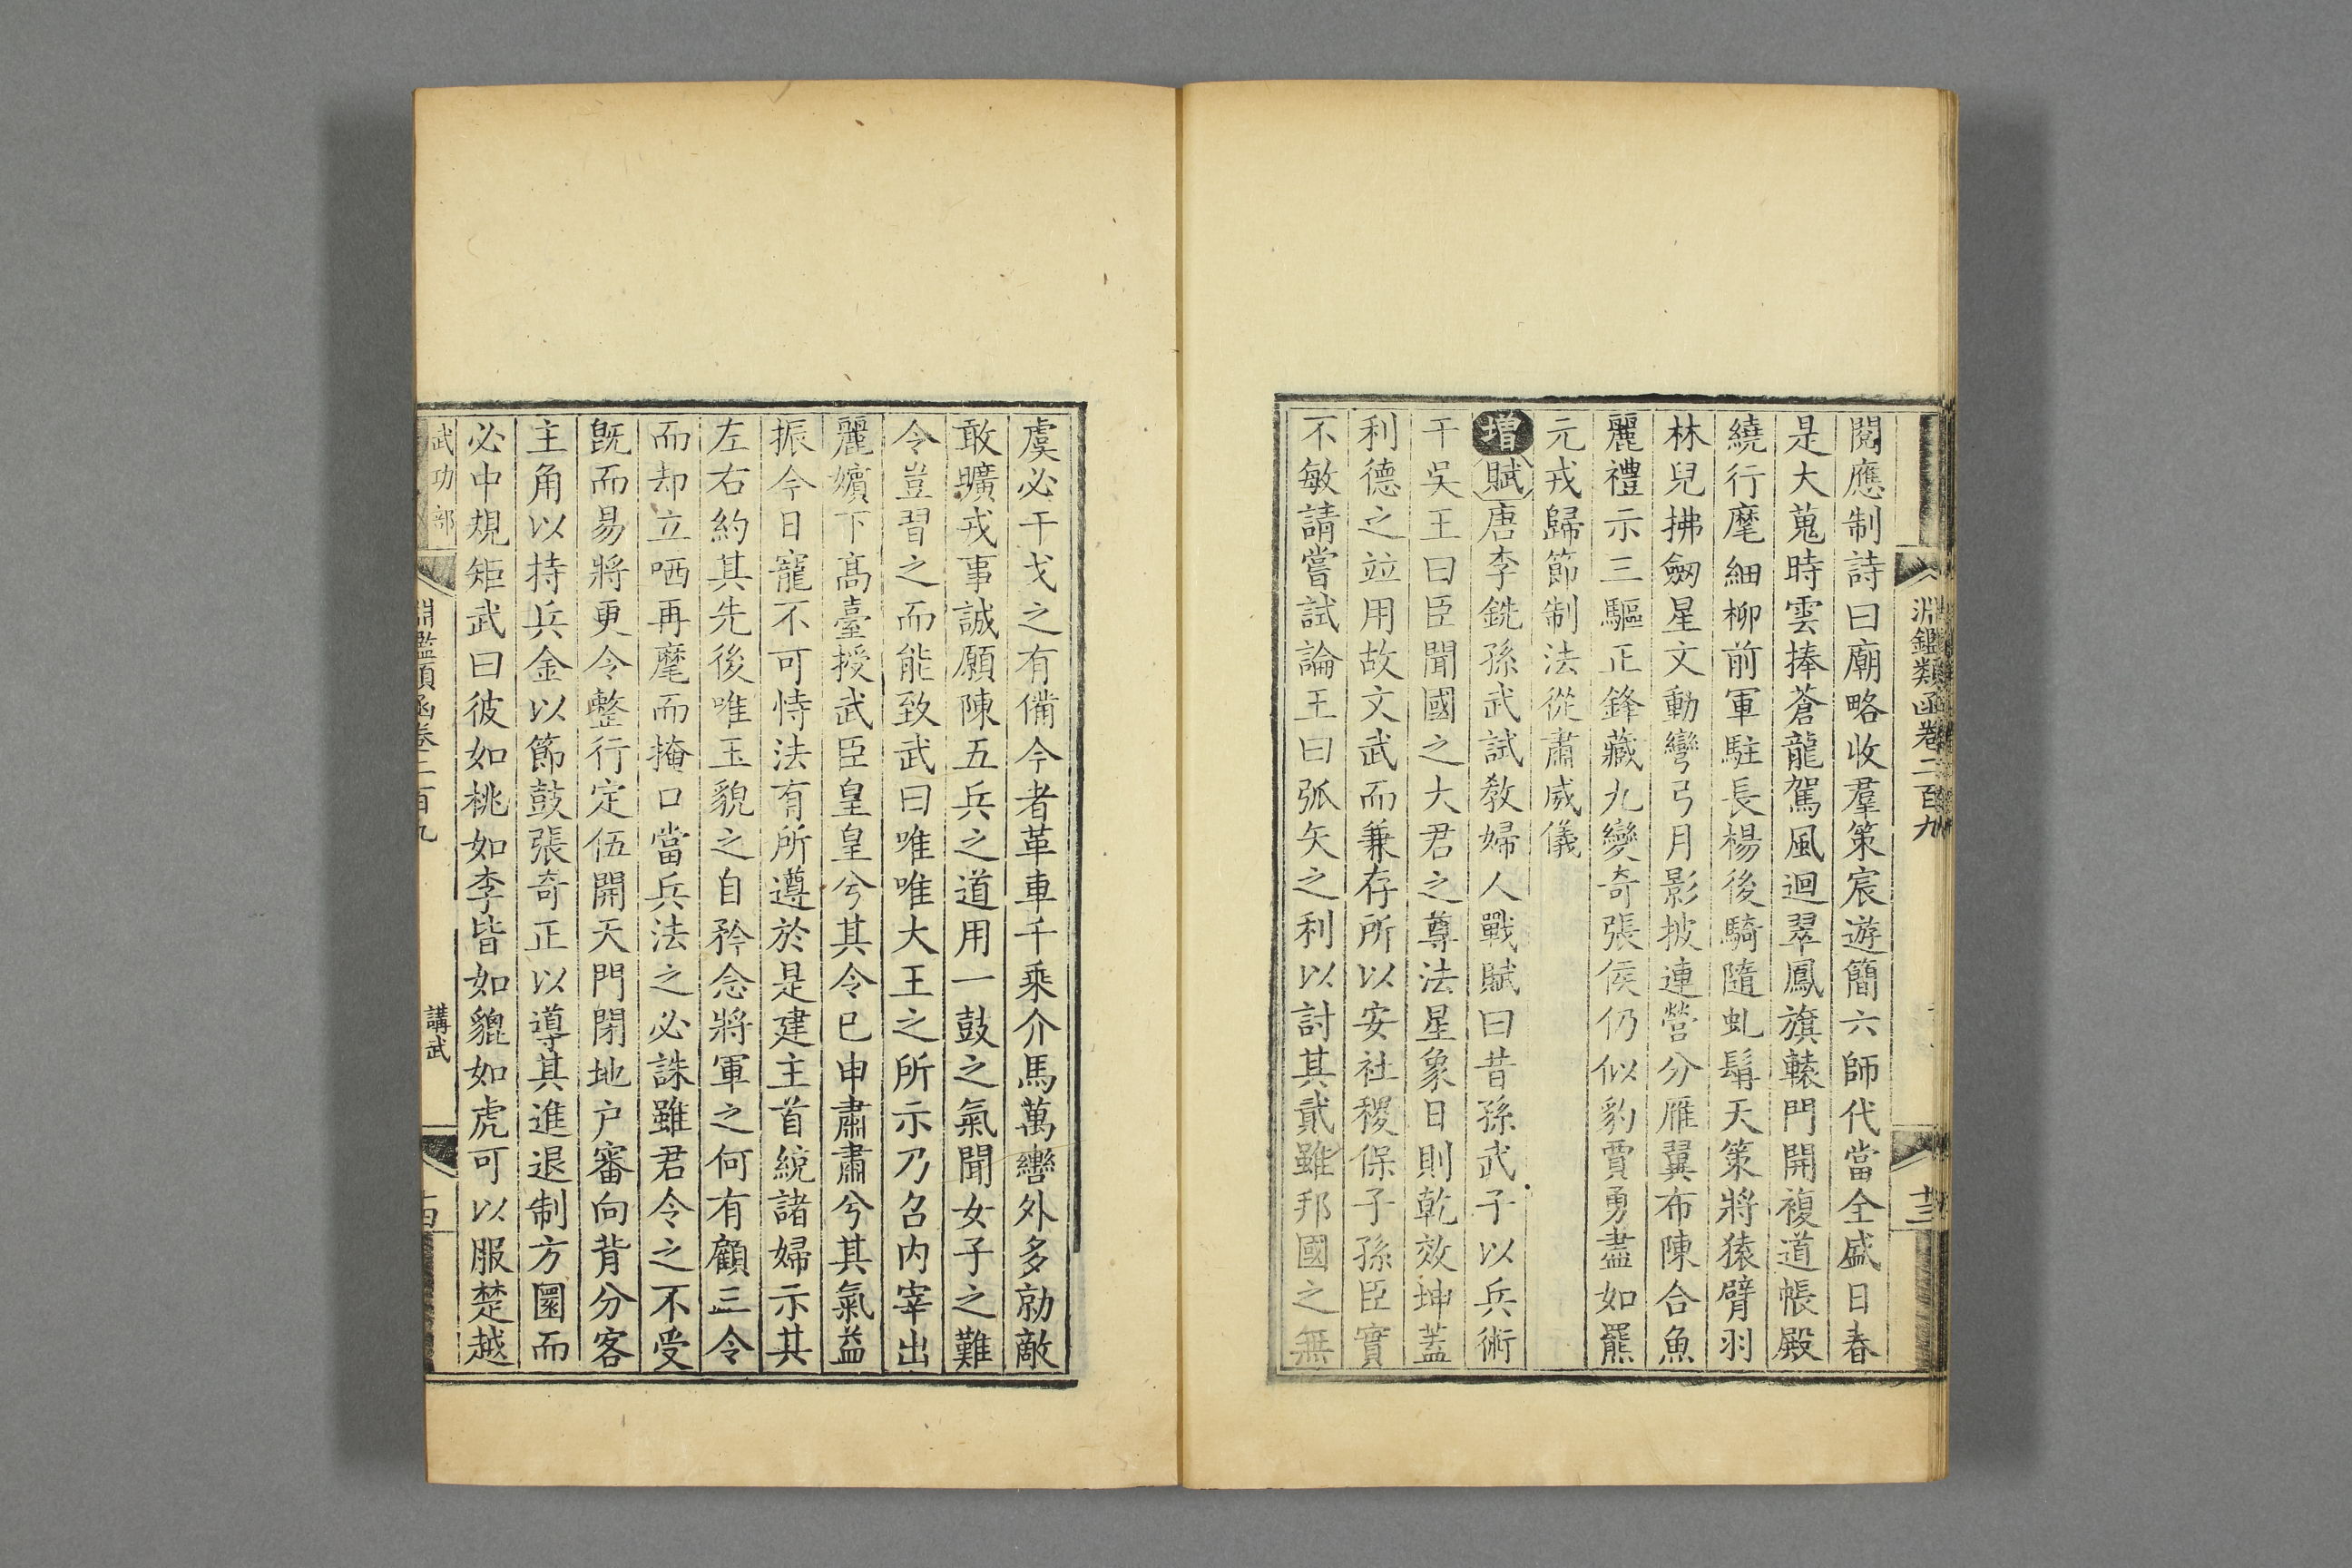 淵鑑類函卷二百九
閱應制詩曰廟略收羣策宸遊簡六師代當全盛日春
是大蒐時雲捧蒼龍駕風迴翠鳳旗轅門開複道帳殿
繞行麾細柳前軍駐長楊後騎隨虬鬚天策將猿臂羽
林兒拂劒星文動彎弓月影披連營分雁翼布陳合魚
麗禮示三驅正鋒藏九變奇張侯仍似豹賈勇盡如羆
元戎歸節制法從肅威儀
增賦唐李銑孫武試教婦人戰賦曰昔孫武子以兵術
干吳王曰臣聞國之大君之尊法星象日則乾效坤蓋
利德之竝用故文武而兼存所以安社稷保子孫臣實
不敏請嘗試論王曰弧矢之利以討其貳雖邦國之無
虞必干戈之有備今者革車千乘介馬萬轡外多勍敵
敢曠戎事誠願陳五兵之道用一鼓之氣聞女子之難
令豈習之而能致武曰唯唯大王之所示乃召内宰出
麗嬪下高臺授武臣皇皇兮其令已申肅肅兮其氣益
振今日寵不可恃法有所遵於是建主首統諸婦示其
左右約其先後唯玉貌之自矜念將軍之何有顧三令
而却立哂再麾而掩口當兵法之必誅雖君令之不受
旣而易將更令整行定伍開天門閉地户審向背分客
主角以持兵金以節鼓張奇正以導其進退制方圓而
必中規矩武曰彼如桃如李皆如貔如虎可以服楚越
武功部 淵鑑類函卷二百九 講武